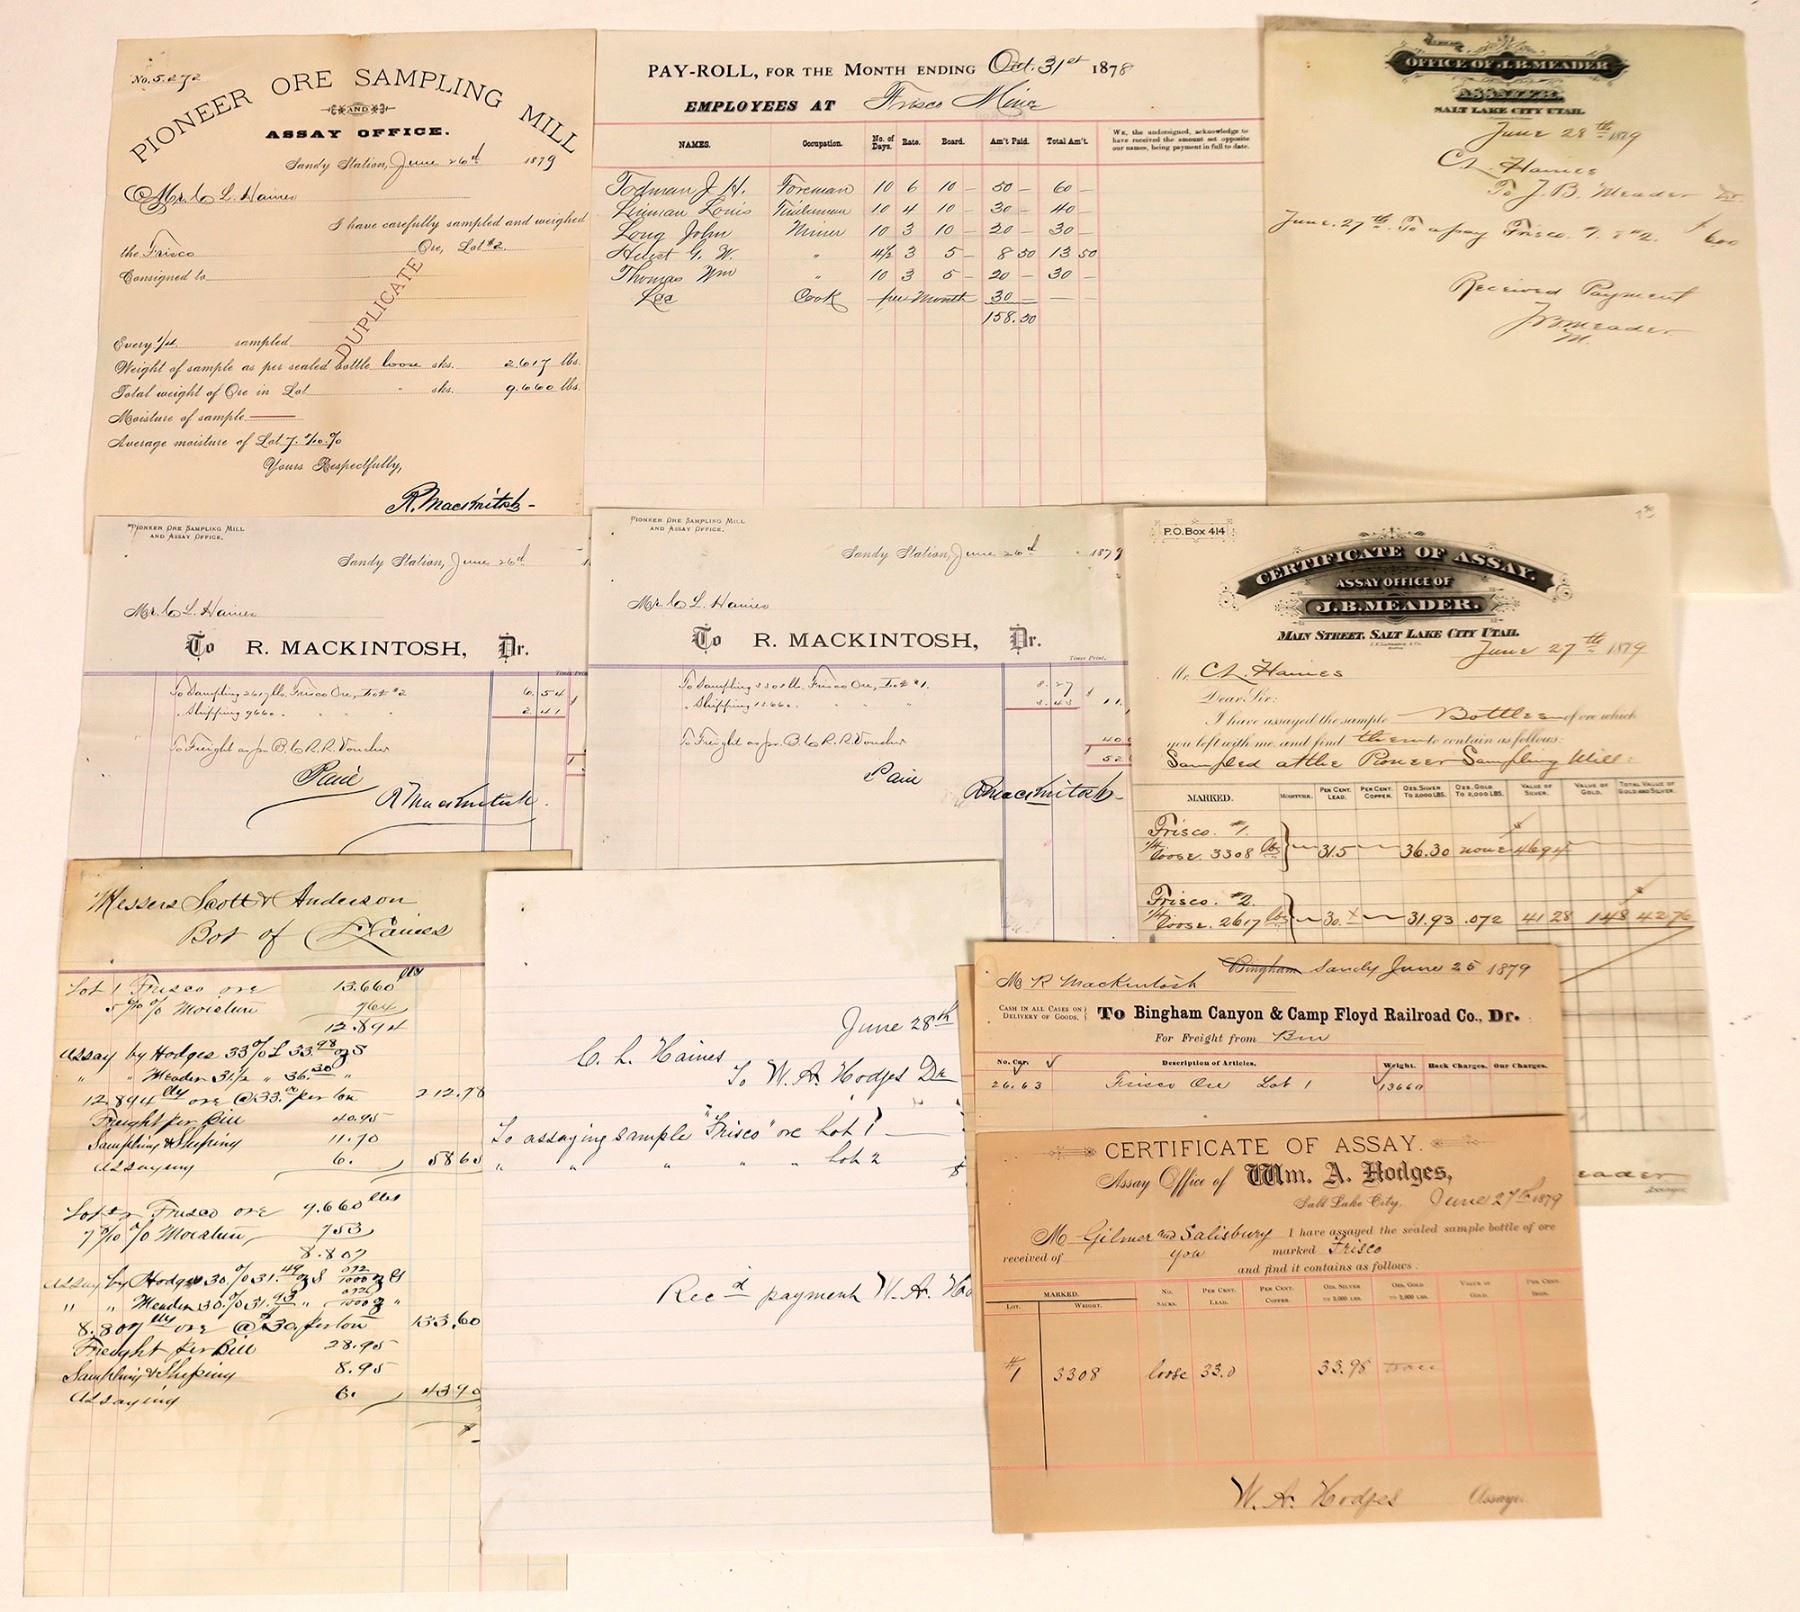 No. 5.272
PIONEER ORE SAMPLING MILL
AND
ASSAY OFFICE.
Sandy Station, June 26d 1879
Mr. C L. Haines
I have carefully sampled and weighed
the Frisco Ore, Lot #2
Consigned to
DUPLICATE
Every sampled
Weight of sample as per sealed bottle loose sks. 2617 lbs.
Total weight of Ore in Lot " sks. 9.660 lbs.
Moisture of sample
Average moisture of Lot
Yours Respectfully,
R. Mackintosh
PAY-ROLL, FOR THE MONTH ENDING Oct. 31st 1878
EMPLOYEES AT Frisco Mine
NAMES. Occupation. No. of Days. Rate. Board. Am't Paid. Total Am't.
WE, the undersigned, acknowledge to
have received the amount set opposite
our names, being payment in full to date.
Todman J. H. Foreman 10 6 10 – 50 – 60 –
Louis 10 4 10 – 30 – 40 –
Long John Miner 10 3 10 – 20 – 30 –
G. W. " 4½ 3 5 – 8 50 13 50
Thomas Wm " 10 3 5 – 20 – 30 –
Lee Cook per Month 30 –
158.50
OFFICE OF J. B. MEADER
ASSAYER.
SALT LAKE CITY UTAH.
June 28th 1879
C L. Haines
To J. B. Meader Dr
June. 27th. To assay Frisco. #1. & #2. $ 6 00
Received Payment
J B Meader
M.
PIONEER ORE SAMPLING MILL
AND ASSAY OFFICE.
Sandy Station, June 26d
Mr. C L. Haines
To R. MACKINTOSH, Dr.
To Sampling 2617 lb. Frisco Ore, Lot #2 6.54
" Shipping 9660 " " " 2.41
To Freight as pr. B. C R. R. Voucher
Paid
R Mackintosh.
PIONEER ORE SAMPLING MILL
AND ASSAY OFFICE.
Sandy Station, June 26d 1879
Mr. C L. Haines
To R. MACKINTOSH, Dr.
Times Print.
To Sampling 3308 lb. Frisco Ore, Lot #1. 8.27
" Shipping 13660. " " " 3.43 11
To Freight as pr. B. C R. R. Voucher 40
52
Paid
R Mackintosh
P. O. Box 414
CERTIFICATE OF ASSAY.
ASSAY OFFICE OF
J. B. MEADER.
MAIN STREET, SALT LAKE CITY UTAH.
June 27th 1879
Mr. C L. Haines
Dear Sir:
I have assayed the sample Bottles of ore which
you left with me, and find them to contain as follows:
Sampled at the Pioneer Sampling Mill:
MARKED. MOISTURE. PER CENT. LEAD. PER CENT. COPPER. OZS. SILVER TO 2,000 LBS. OZS. GOLD TO 2,000 LBS. VALUE OF SILVER. VALUE OF GOLD. TOTAL VALUE OF GOLD AND SILVER.
Frisco. #1. $
loose. 3308 lbs 31.5 36.30 none 46 94
Frisco. #2. $
loose. 2617 lbs 30. 31.93 .072 41 28 1 48 42 76
Messers Scott & Anderson
Bot of C L Haines
Lot 1 Frisco ore 13.660 lbs
% Moisture
12.894
Assay by Hodges 33% L 33.98 oz S
" " Meader 31½ " 36.30 "
12.894 lbs ore @ 33. per ton 212.78
Freight per Bill 40.95
Sampling & Shiping 11.70
Assaying 6. 58 65
Lot 2 Frisco ore 9.660 lbs
7 % Moisture 753
8.807
Assay by Hodges 30.% 31.49 oz S 072/1000 oz G
" " Meader 30.% 31.93 "
8.807 lbs ore @ 30. per ton 133.60
Freight per Bill 28.95
Sampling & Shiping 8.95
Assaying 6. 43 90
$
June 28th
C. L. Haines
To W. A. Hodges Dr
To assaying sample "Frisco" ore Lot 1
" " " " " Lot 2 $
Rec'd payment W. A. Ho
Sandy June 25 1879
M R Mackintosh
CASH IN ALL CASES ON
DELIVERY OF GOODS.
To Bingham Canyon & Camp Floyd Railroad Co., Dr.
For Freight from Bin
No. Car. Description of Articles. Weight. Back Charges. Our Charges.
26.63 Frisco Ore Lot 1 13660
CERTIFICATE OF ASSAY.
Assay Office of Wm. A. Hodges,
Salt Lake City, June 27th 1879
M Gilmer and Salisbury I have assayed the sealed sample bottle of ore
received of you marked Frisco
and find it contains as follows:
MARKED. LOT. WEIGHT. NO. SACKS. PER CENT. LEAD. PER CENT. COPPER. OZS. SILVER TO 2,000 LBS. OZS. GOLD TO 2,000 LBS. VALUE OF GOLD. PER CENT. IRON.
#1 3308 loose 33.0 33.98 trace
W. A. Hodges Assayer
eader